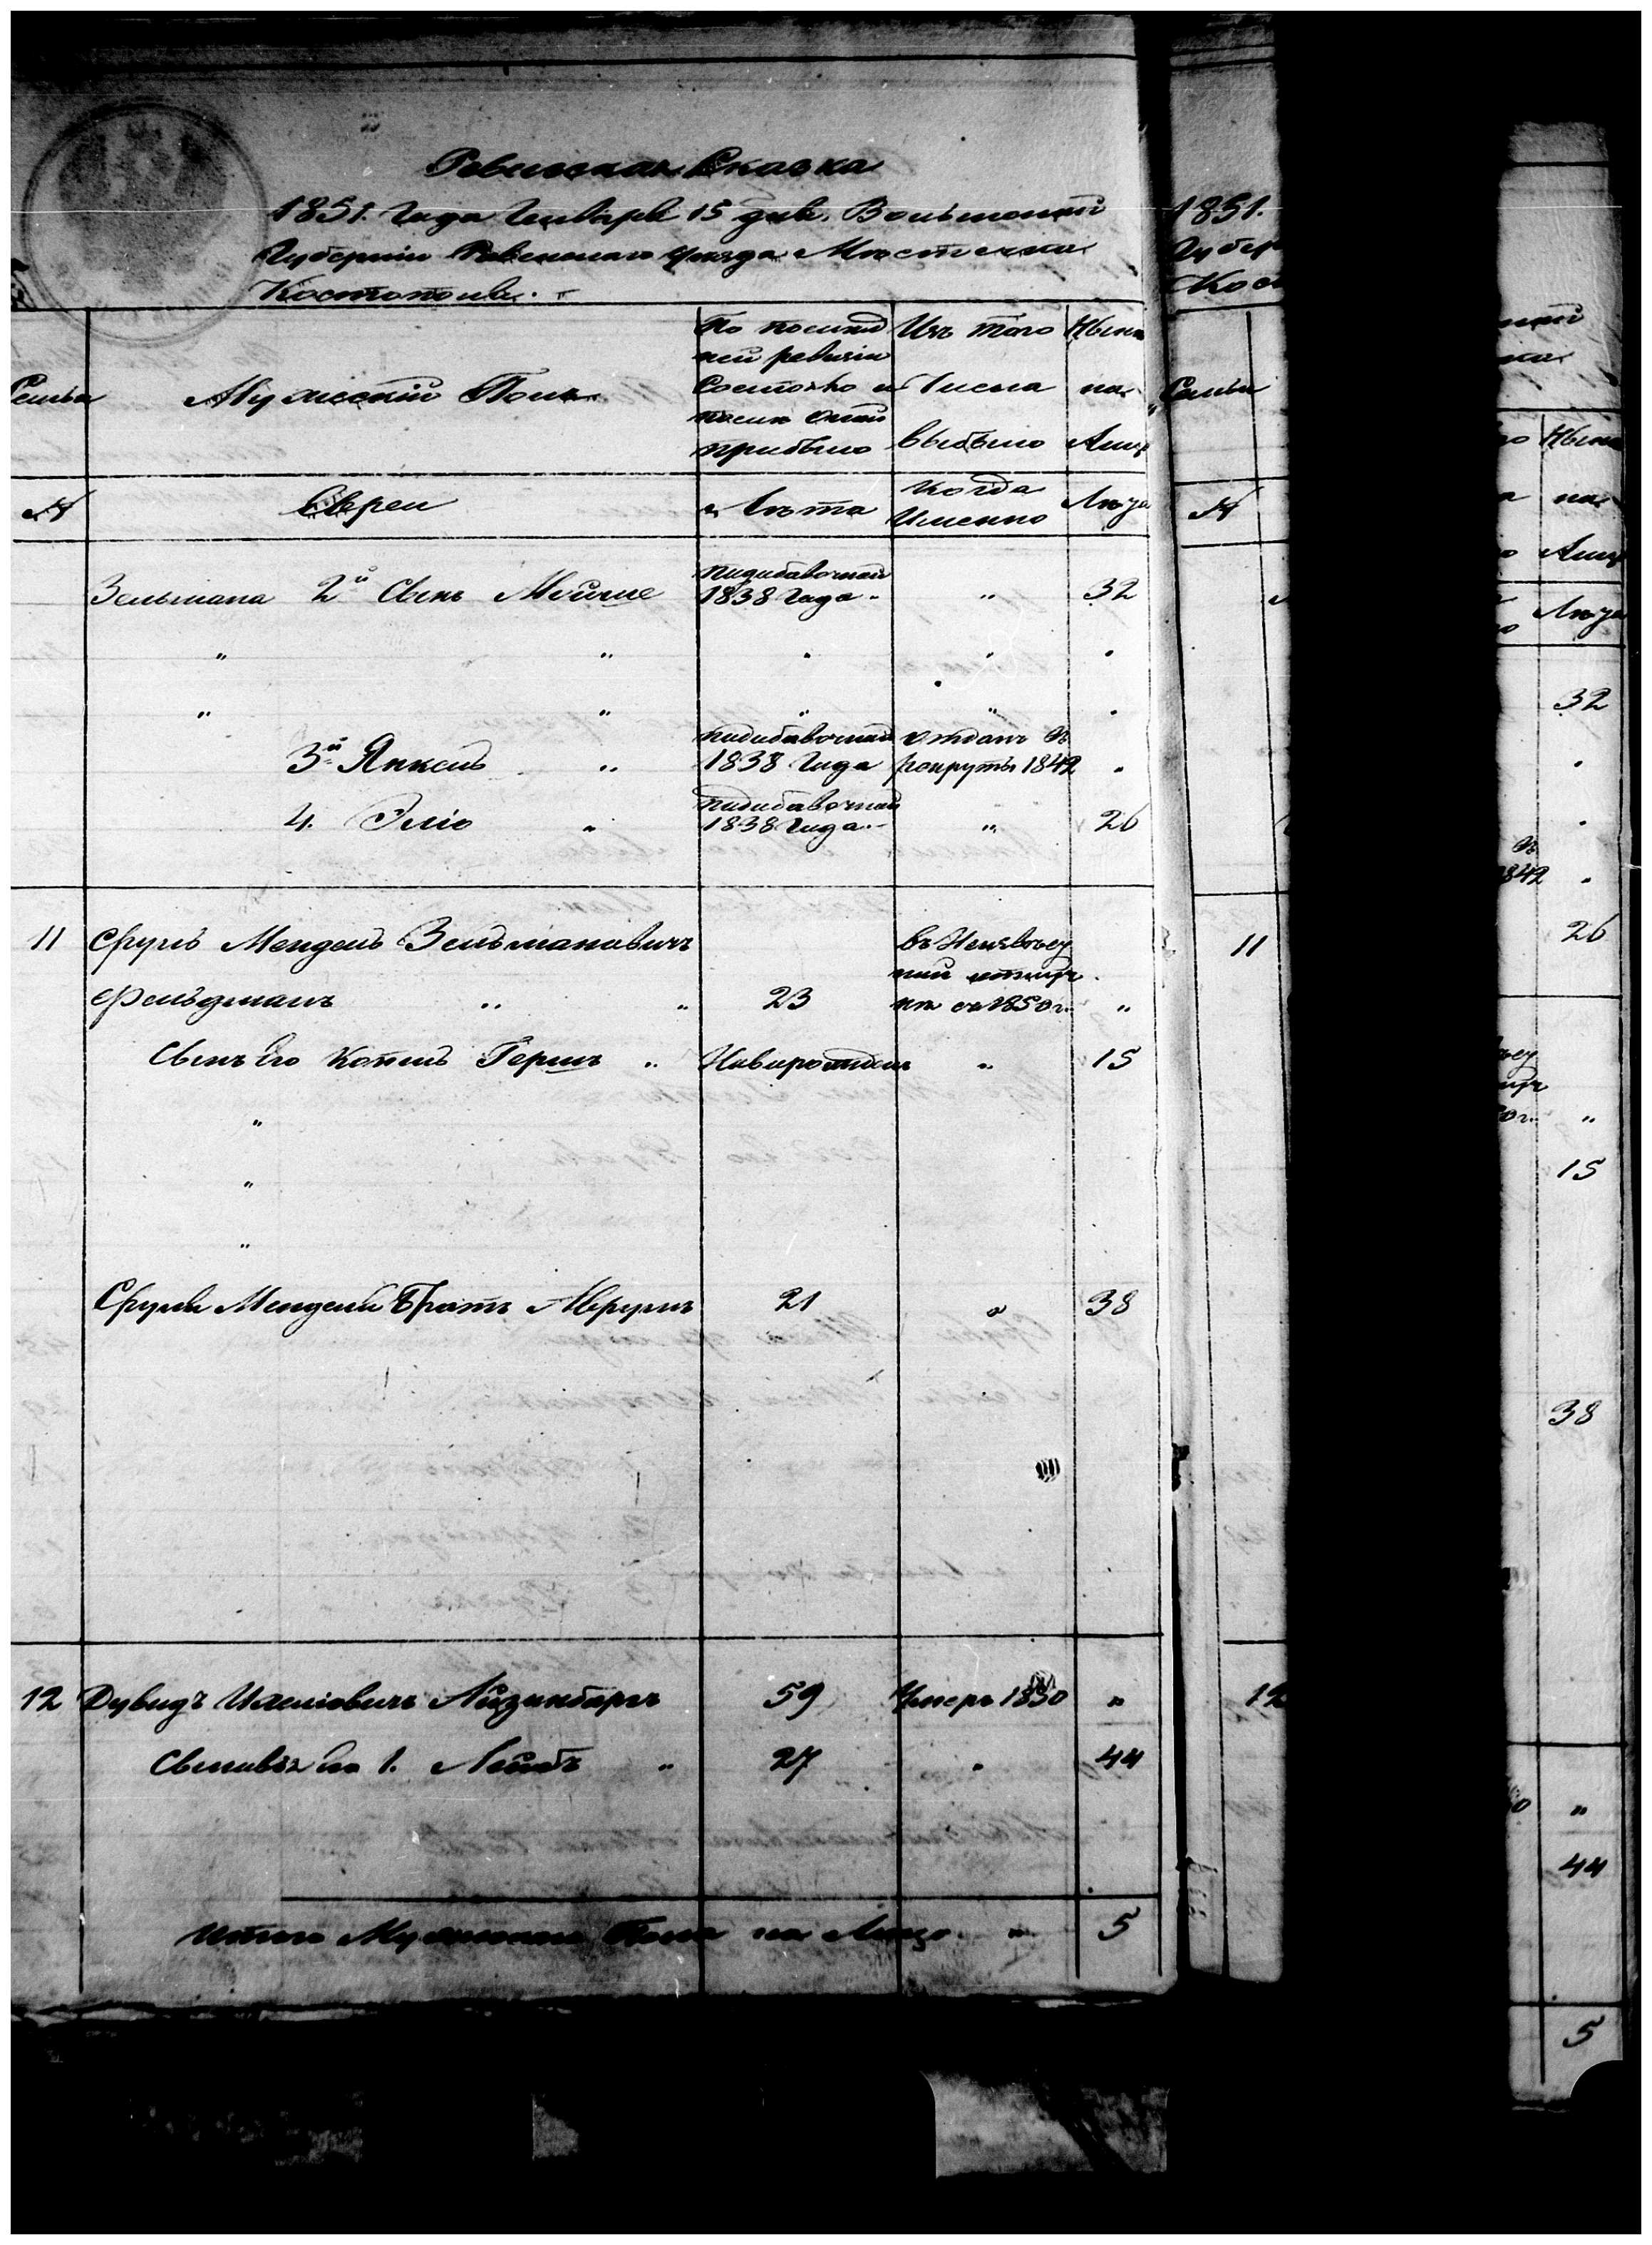 Ревизская Сказка
1851. Года Генваря 15 дня. Волынской
Губернии Ровенскаго уезда Местечка
Костополя.
Семьи
Мужескій Полъ
По послед
ней ревизіи
Состояло и
после оной
прибыло
Изъ того
Числа
выбыло
Ныне
на
Лицо
№
Евреи
Лета
когда
Именно
Лета
Зельмана 2й Сынъ Мойше
1838 Года
"
32
3й Янкель "
1838 Года
отданъ въ
рекруты 1842
"
4. Эліо "
1838 Года
"
26
11 Сруль Мендель Зельмановичъ
Фельдманъ " "
23
въ 1850 г.
"
Сынъ его Копель Герш "
Новорожден
"
15
"
"
"
Сруля Менделя Братъ Аврумъ
21
"
38
12 Дувидъ Айзинбергъ
59
Умеръ 1850
"
Сыновья его 1. Лейбъ "
27
"
44
Итого Мужескаго Пола на Лицо "
5
1851.
Губер
Кос
Семьи
№
11
12
Ныне
на
Лицо
Лета
32
1842
26
"
15
38
"
44
5